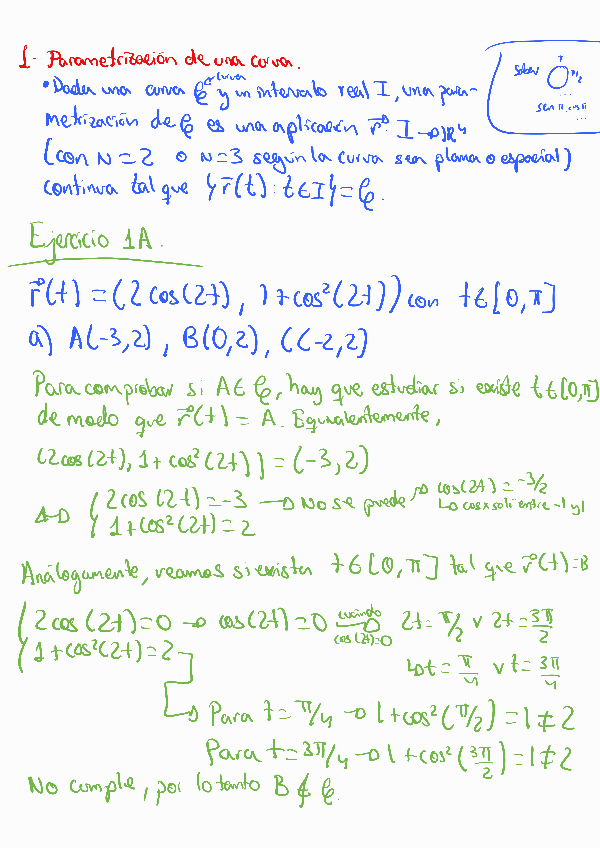 1- Parametrización de una curva.
• Dada una curva 𝒞 ← curva y un intervalo real I, una para-
metrización de 𝒞 es una aplicación r⃗: I → ℝᴺ
(con N=2 o N=3 según la curva sea plana o espacial)
continua tal que {r⃗(t): t∈I} = 𝒞.
Saber
π/2
...
sen π, cos π
Ejercicio 1A.
r⃗(t) = (2cos(2t), 1+cos²(2t)) con t∈[0,π]
a) A(-3,2), B(0,2), C(-2,2)
Para comprobar si A∈𝒞, hay que estudiar si existe t∈[0,π]
de modo que r⃗(t) = A. Equivalentemente,
(2cos(2t), 1+cos²(2t)) = (-3,2)
2cos(2t) = -3 → No se puede → cos(2t) = -3/2
↳ cosx solo entre -1 y 1
↔ { 1+cos²(2t) = 2
Análogamente, veamos si existe t∈[0,π] tal que r⃗(t)=B
{ 2cos(2t)=0 → cos(2t)=0 cuándo cos(2t)=0 → 2t=π/2 ∨ 2t=3π/2
1+cos²(2t)=2
↳ t=π/4 ∨ t=3π/4
→ Para t=π/4 → 1+cos²(π/2)=1≠2
Para t=3π/4 → 1+cos²(3π/2)=1≠2
No cumple, por lo tanto B∉𝒞.